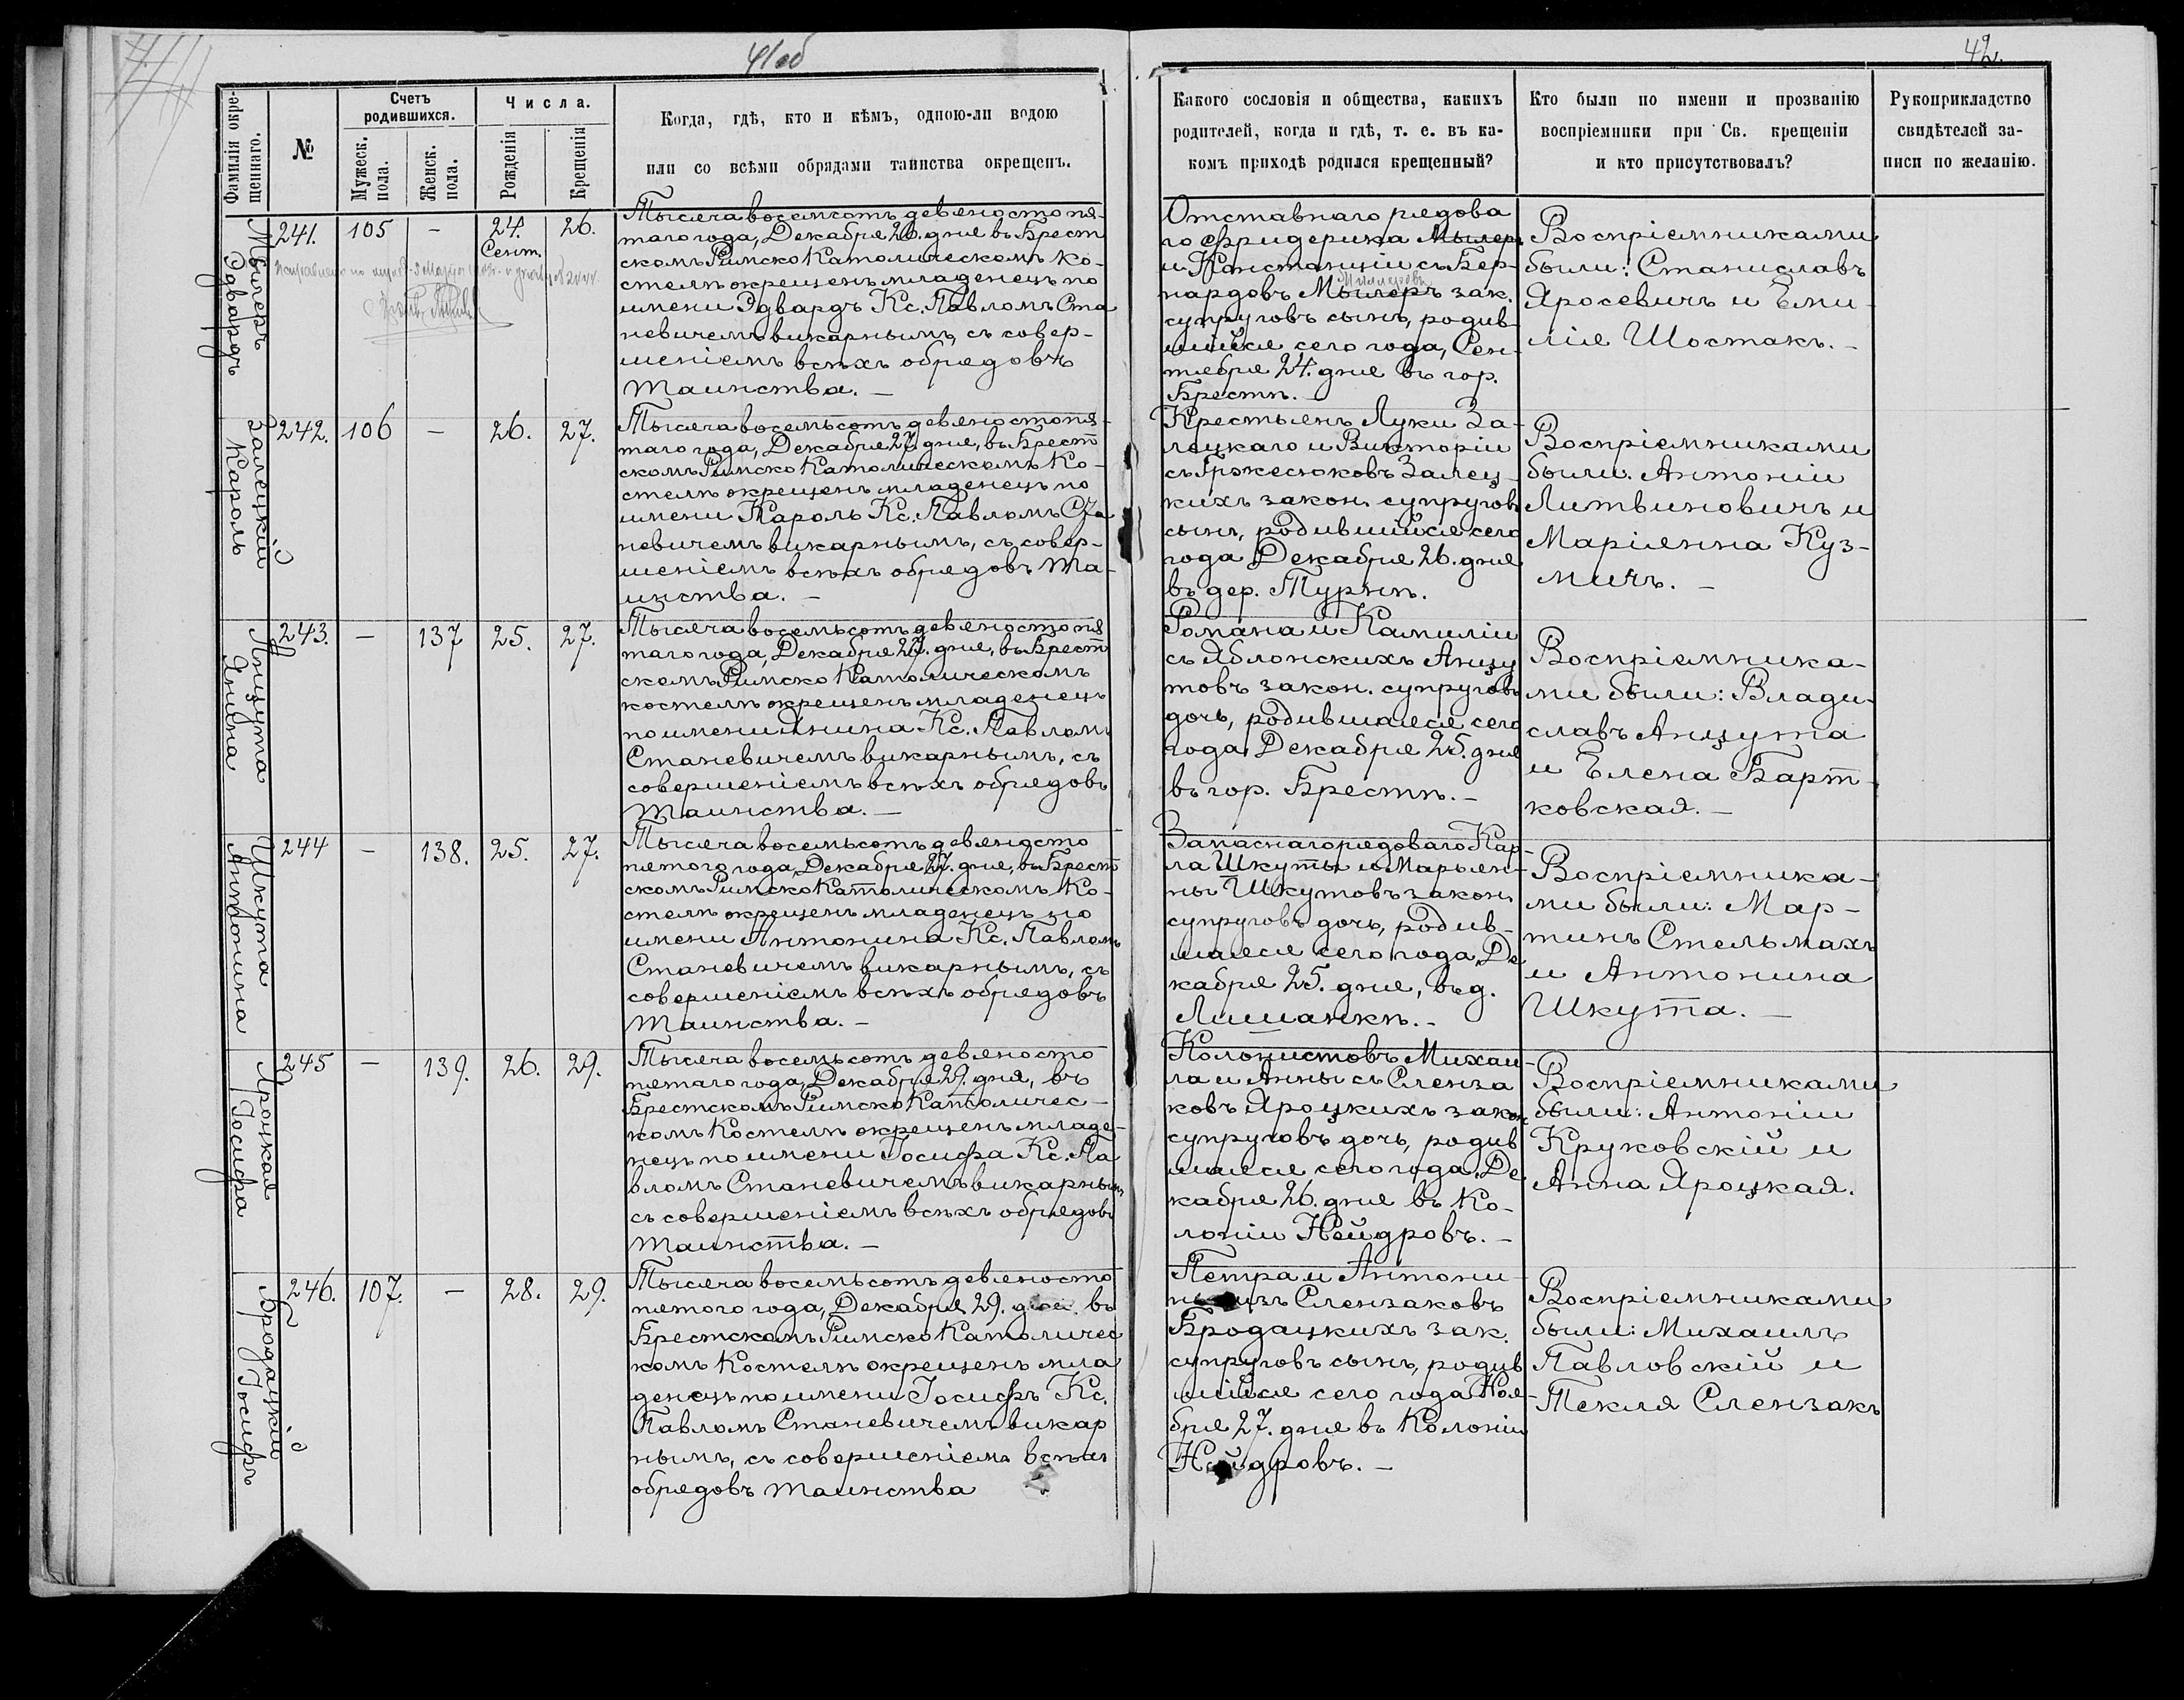 41об
42.
Фамилія окре-
щеннаго.
№
Счетъ
родившихся.
Мужеск.
пола.
Женск.
пола.
Числа.
Рожденія
Крещенія
Когда, гдѣ, кто и кѣмъ, одною-ли водою
или со всѣми обрядами таинства окрещенъ.
Какого сословія и общества, какихъ
родителей, когда и гдѣ, т. е. въ ка-
комъ приходѣ родился крещенный?
Кто были по имени и прозванію
воспріемники при Св. крещеніи
и кто присутствовалъ?
Рукоприкладство
свидѣтелей за-
писи по желанію.
Мылеръ
Эдвардъ
241. 105 – 24. 26.
Сент.
Тысяча восемсотъ девяностопя-
таго года, Декабря 26. дня въ Брест
скомъ Римско Католическомъ Ко-
стелѣ окрещенъ младенецъ по
имени Эдвардъ Кс. Павломъ Ста
невичемъ викарнымъ, съ совер-
шеніемъ всѣхъ обрядовъ
Таинства. –
Отставнаго рядова
го Фридерика Мылер
и Констанціи съ Бер-
нардовъ Мылеръ зак.
супруговъ сынъ, родив-
шійся сего года, Сен-
тября 24. дня въ гор.
Брестѣ. –
Воспріемниками
были: Станиславъ
Яросевичъ и Еми-
лія Шостакъ. –
Залецкій
Кароль
242. 106 – 26. 27.
Тысяча восемьсотъ девяностопя-
таго года, Декабря 27 дня, въ Брест
скомъ Римско Католическомъ Ко-
стелѣ окрещенъ младенецъ по
имени Кароль Кс. Павломъ Ста
невичемъ викарнымъ, съ совер-
шеніемъ всѣхъ обрядовъ Та-
инства. –
Крестьянъ Луки За-
лецкаго и Викторіи
съ Гржесюковъ Залец-
кихъ закон. супругов
сынъ, родившійся сего
года Декабря 26. дня
въ дер. Турнѣ.
Воспріемниками
были. Антоніи
Литвиновичъ и
Маріянна Куз-
мичъ. –
Анцута
Янина
243. – 137 25. 27.
Тысяча восемьсотъ девяностопя
таго года, Декабря 27. дня, въ Брест
скомъ Римско Католическомъ
костелѣ окрещенъ младенецъ
по имени Янина Кс. Павломъ
Станевичемъ викарнымъ, съ
совершеніемъ всѣхъ обрядовъ
Таинства. –
Романа и Камиліи
съ Яблонскихъ Анцу
товъ закон. супруговъ
дочь, родившаяся сего
года Декабря 25. дня
въ гор. Брестѣ. –
Воспріемника-
ми были: Влади-
славъ Анцута
и Елена Барт-
ковская. –
Шкута
Антонина
244 – 138. 25. 27.
Тысяча восемьсотъ девяносто
пятого года, Декабря 27. дня, въ Брест
скомъ Римско Католическомъ Ко-
стелѣ окрещенъ младенецъ по
имени Антонина Кс. Павломъ
Станевичемъ викарнымъ, съ
совершеніемъ всѣхъ обрядовъ
Таинства. –
Запаснаго рядоваго Кар-
ла Шкуты и Марьян-
ны Шкутовъ закон.
супруговъ дочь, родив-
шаяся сего года Де
кабря 25. дня, въ д.
Лишанкѣ. –
Воспріемника-
ми были: Мар-
тинъ Стельмахъ
и Антонина
Шкута. –
Яроцкая
Іосифа
245 – 139. 26. 29.
Тысяча восемьсотъ девяносто
пятаго года, Декабря 29. дня, въ
Брестскомъ Римско Католичес-
комъ Костелѣ окрещенъ младе-
нецъ по имени Іосифа Кс. Па
вломъ Станевичемъ викарным,
съ совершеніемъ всѣхъ обрядовъ
Таинства. –
Колонистовъ Михаи-
ла и Анны съ Сленза
ковъ Яроцкихъ закон
супруговъ дочь, родив
шаяся сего года Де
кабря 26. дня въ Ко-
лоніи Нейдровъ. –
Воспріемниками
были: Антоніи
Круковскій и
Анна Яроцкая.
Бродацкій
Іосифъ
246. 107. – 28. 29.
Тысяча восемьсотъ девяносто
пятого года, Декабря 29. дня въ
Брестскомъ Римско Католичес
комъ Костелѣ окрещенъ мла
денецъ по имени Іосифъ Кс.
Павломъ Станевичемъ викар
нымъ, съ совершеніемъ всѣхъ
обрядовъ Таинства
Петра и Антони
изъ Слензаковъ
Бродацкихъ зак.
супруговъ сынъ, родив
шійся сего года Ноя-
бря 27. дня въ Колоніи
Нейдровъ. –
Воспріемниками
были: Михаилъ
Павловскій и
Текля Слензакъ